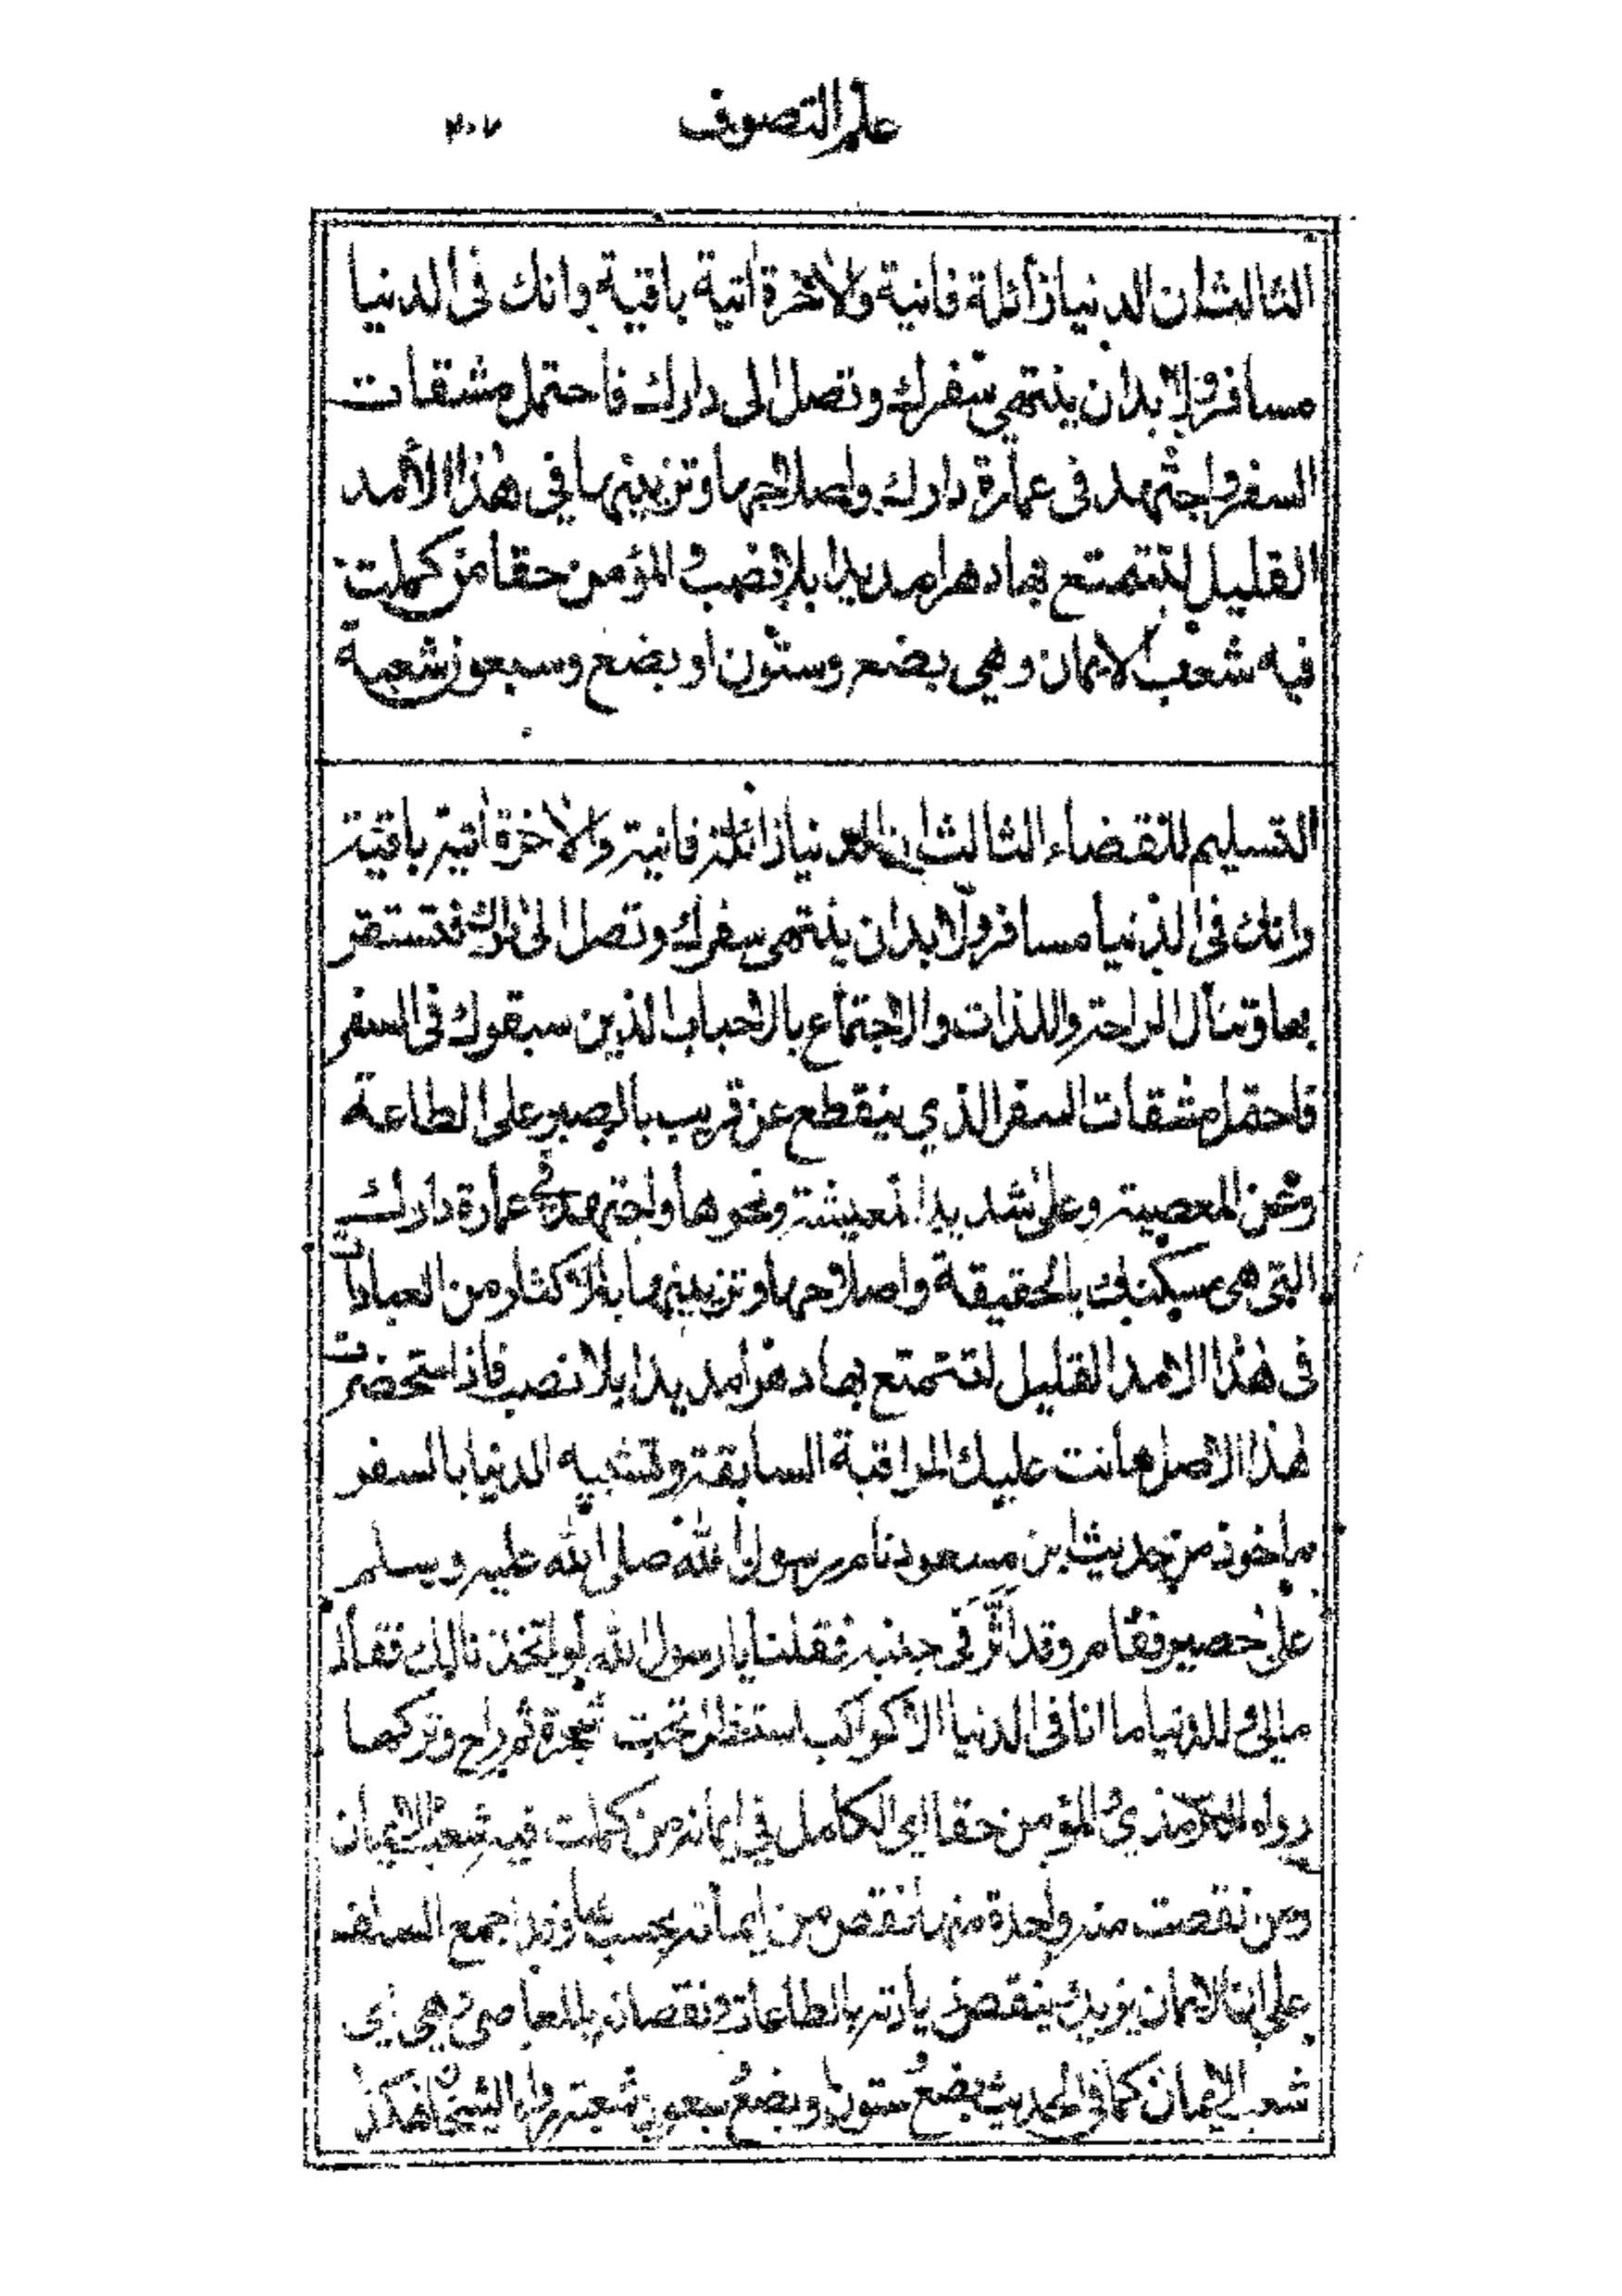 علم التصوف ٢٠٧
الثالث ان الدنيا زائلة فانية والآخرة آتية باقية وانك فى الدنيا
مسافر ولا بد ان ينتهى سفرك وتصل الى دارك فاحتمل مشقات
السفر واجتهد فى عمارة دارك واصلاحها وتزيينها في هذا الأمد
القليل لتتمتع بها دهرا مديدا بلا نصب والمؤمن حقا من كملت
فيه شعب الايمان وهي بضع وستون او بضع وسبعون شعبة
التسليم للقضاء الثالث ان الدنيا زائلة فانية والآخرة آتية باقية
وانك فى الدنيا مسافر ولا بد ان ينتهى سفرك وتصل الى دارك فتستقر
بها وتنال الراحة واللذات والاجتماع بالاحباب الذين سبقوك فى السفر
فاحتمل مشقات السفر الذي ينقطع عن قريب بالصبر على الطاعة
وعن المعصية وعلى شديد المعيشة ونحوها واجتهد فى عمارة دارك
التى هى مسكنك بالحقيقة واصلاحها وتزيينها بالاكثار من العبادات
فى هذا الامد القليل لتتمتع بها دهرا مديدا بلا نصب فاذا استحضرت
هذا الاصل هانت عليك المراقبة السابقة وتشبيه الدنيا بالسفر
مأخوذ من حديث ابن مسعود نام رسول الله صلى الله عليه وسلم
على حصير فقام وقد أثر فى جنبه فقلنا يا رسول الله لو اتخذنا لك فقال
مالى وللدنيا ما انا فى الدنيا الا كراكب استظل تحت شجرة ثم راح وتركها
رواه الترمذي والمؤمن حقا اى الكامل في ايمانه من كملت فيه شعب الايمان
ومن نقصت منه واحدة منها نقص من ايمانه بحسبها وقد اجمع السلف
على ان الايمان يزيد وينقص زيادته بالطاعات ونقصانه بالمعاصى وهي اى
شعب الايمان كما فى الحديث بضع وستون او بضع وسبعون شعبة رواه الشيخان هكذا